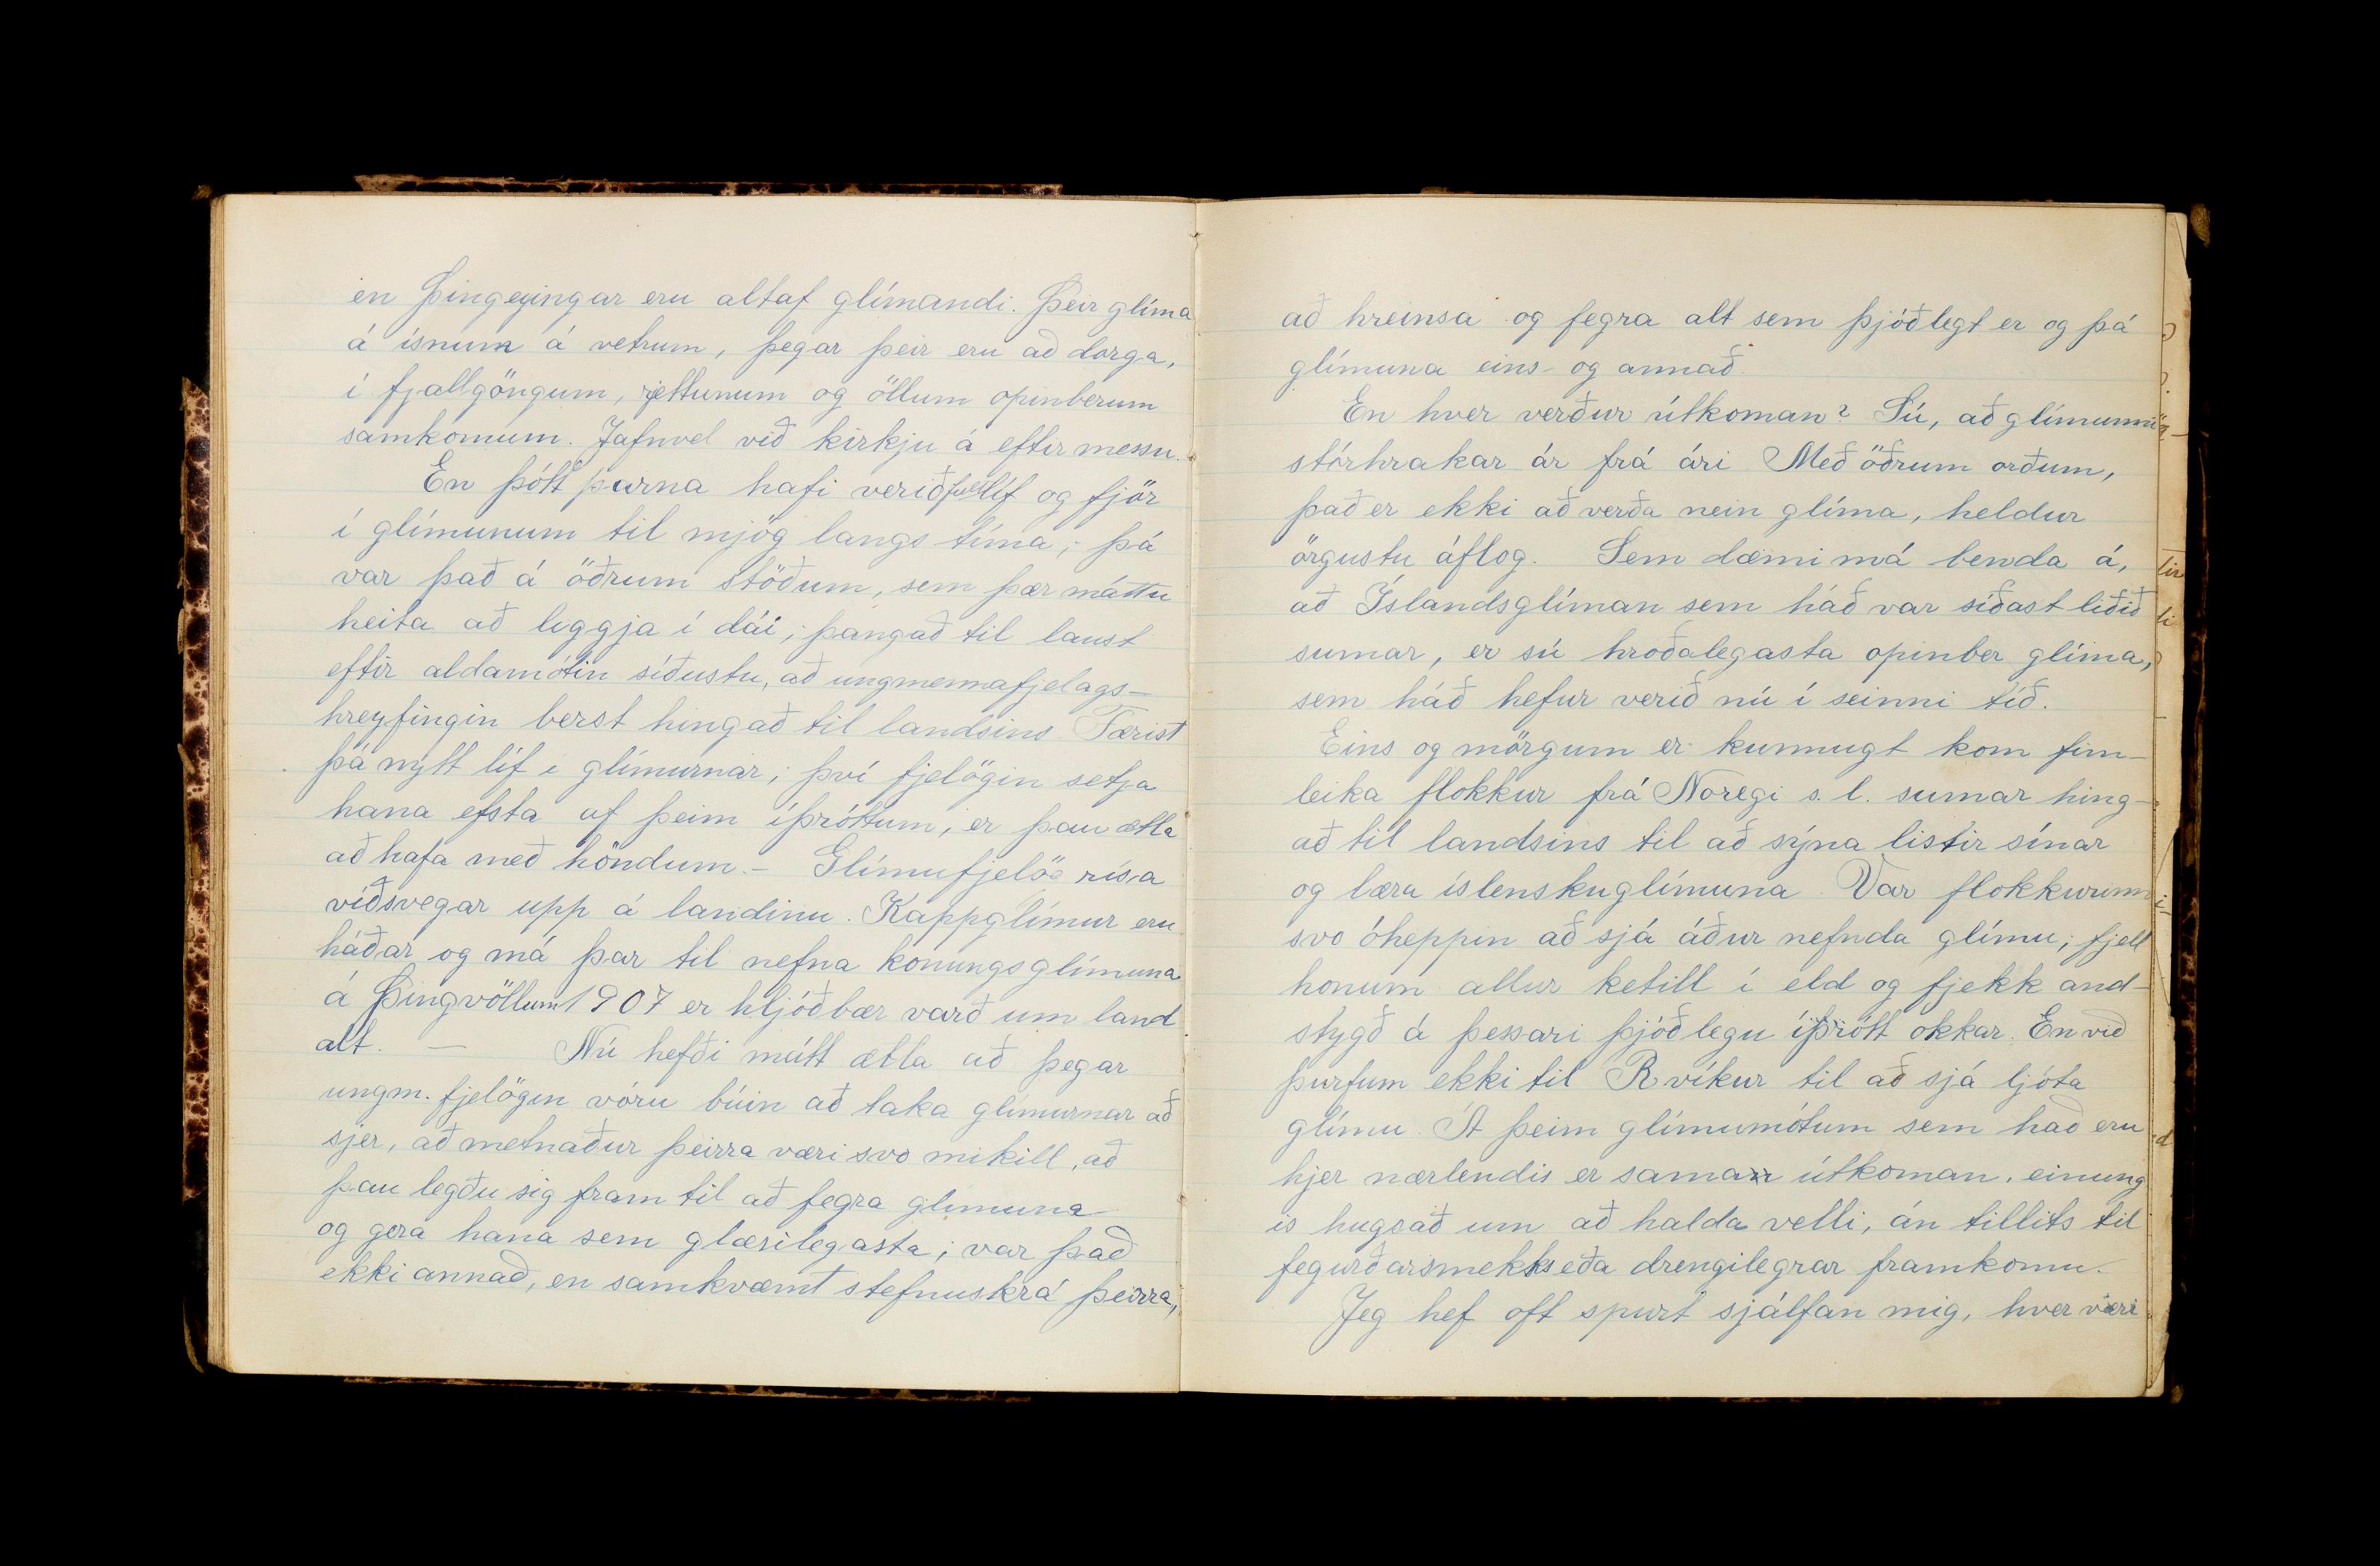 en Þingeyingar eru altaf glímandi. Þeir glíma
á ísnum á vetrum, þegar þeir eru að dorga,
í fjallgöngum, rjettunum og öllum opinberum
samkomum. Jafnvel við kirkju á eftir messu.
En þótt þarna hafi verið fullt líf og fjör
í glímunum til mjög langs tíma, þá
var það á öðrum stöðum, sem þær máttu
heita að leggja í dái, þangað til laust
eftir aldamótin síðustu, að ungmennafjelags-
hreyfingin berst hingað til landsins. Færist
þá nýtt líf í glímurnar; því fjelögin setja
hana efsta af þeim íþróttum, er þau ætla
að hafa með höndum. - Glímufjelög rísa
víðsvegar upp á landinu. Kappglímur eru
háðar og má þar til nefna konungsglímuna
á Þingvöllum 1907 er hljóðbær varð um land
alt. — Nú hefði mátt ætla að þegar
ungm. fjelögin vóru búin að taka glímurnar að
sjer, að metnaður þeirra væri svo mikill, að
þau legðu sig fram til að fegra glímuna
og gera hana sem glæsilegasta; var það
ekki annað, en samkvæmt stefnuskrá þeirra,
að hreinsa og fegra alt sem þjóðlegt er og þá
glímuna eins og annað.
En hver verður útkoman? Sú, að glímunni
stórhrakar ár frá ári. Með öðrum orðum,
það er ekki að verða nein glíma, heldur
örgustu áflog. Sem dæmi má benda á,
að Íslandsglíman sem háð var síðast liðið
sumar, er sú hroðalegasta opinber glíma,
sem háð hefur verið nú í seinni tíð.
Eins og mörgum er kunnugt kom fim-
leika flokkur frá Noregi s. l. sumar hing-
að til landsins til að sýna listir sínar
og læra íslenskuglímuna. Var flokkurinn
svo óheppin að sjá áður nefnda glímu; fjell
honum allur ketill í eld og fjekk and-
stygð á þessari þjóðlegu íþrótt okkar. En við
þurfum ekki til Rvíkur til að sjá ljóta
glímu. Á þeim glímumótum sem háð eru
hjer nærlendis er sama útkoman, einung
is hugsað um að halda velli, án tillits til
fegurðarsmekks eða drengilegrar framkomu.
Jeg hef oft spurt sjálfan mig, hver væri